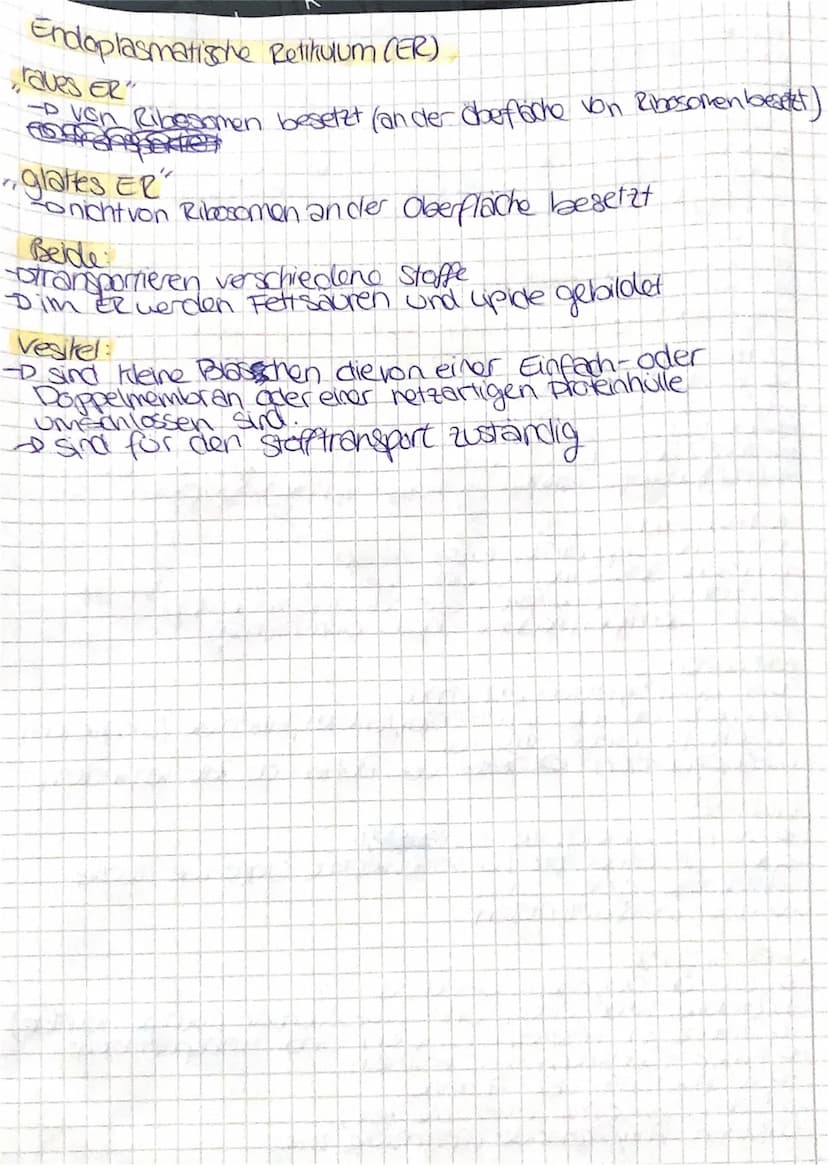 Endoplasmatische Retikulum (ER)
„raues ER"
→ von Ribosomen besetzt (an der Oberfläche von Ribosomen besetzt)
„glattes ER"
→ nicht von Ribosomen an der Oberfläche besetzt
Beide:
→ transportieren verschiedene Stoffe
→ im ER werden Fettsäuren und Lipide gebildet
Vesikel:
→ sind kleine Bläschen die von einer Einfach- oder
Doppelmembran oder einer netzartigen Proteinhülle
umschlossen sind.
→ sind für den Stofftransport zuständig